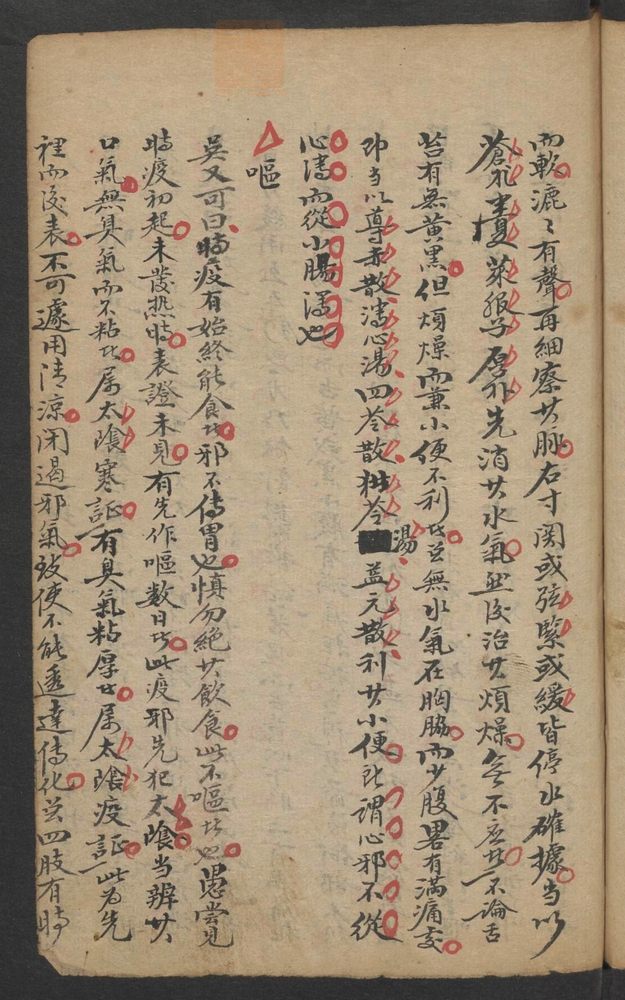 而軟漉〻有聲再細察其脈右寸関或弦緊或緩皆停水確據当以
蒼朮萋萊服子厚朴先消其水氣然後治其煩燥無不应其不論舌
苔有無黄黑但煩燥而兼小便不利此豈無水氣在胸脇而少腹畧有滿痛交
即当以導赤散瀉心湯四苓散猪苓湯益元散利其小便此謂心邪不從
心瀉而從小腸瀉也
嘔
吳又可曰時疫有始終能食者邪不傳胃也慎勿絕其飲食此不嘔者也愚嘗見
時疫初起未發热時表證未見有先作嘔数日者此疫邪先犯太陰当辨其
口氣無臭氣而不粘者属太陰寒証有臭氣粘厚者属太陰疫証此为先
裡而後表不可遽用清凉闭遏邪氣致使不能透達傳化若四肢有時